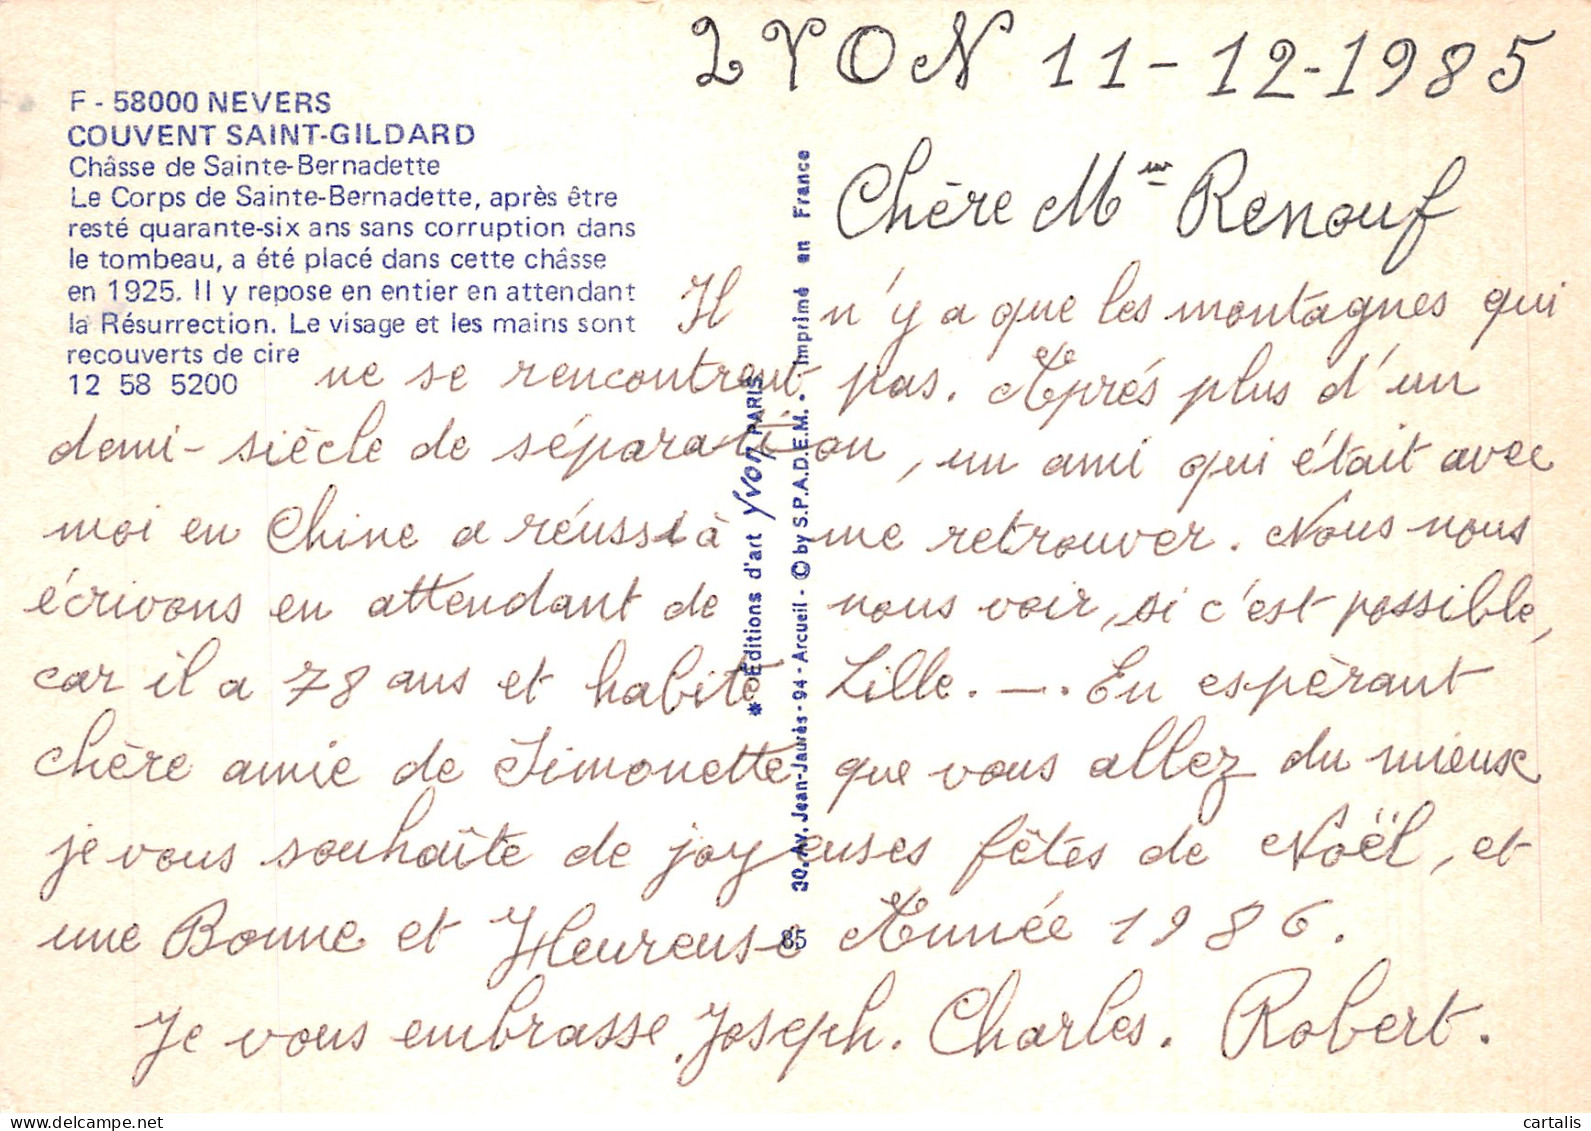 LYON 11-12-1985
F - 58000 NEVERS
COUVENT SAINT-GILDARD
Châsse de Sainte-Bernadette
Le Corps de Sainte-Bernadette, après être
resté quarante-six ans sans corruption dans
le tombeau, a été placé dans cette châsse
en 1925. Il y repose en entier en attendant
la Résurrection. Le visage et les mains sont
recouverts de cire
12 58 5200
Chère Mme Renouf
Il n'y a que les montagnes qui
ne se rencontrent pas. Aprés plus d'un
demi-siècle de séparation, un ami qui était avec
moi en Chine a réussi à me retrouver. Nous nous
écrivons en attendant de nous voir, si c'est possible,
car il a 78 ans et habite Lille. —. En espèrant
chère amie de Simonette que vous allez du mieux
je vous souhaîte de joyeuses fêtes de Noël, et
une Bonne et Heureuse Année 1986.
Je vous embrasse. Joseph. Charles. Robert.
* Editions d'art yvon PARIS
30, Av. Jean-Jaurès - 94 - Arcueil - © by S.P.A.D.E.M. - Imprimé en France
85
delcampe.net
cartalis